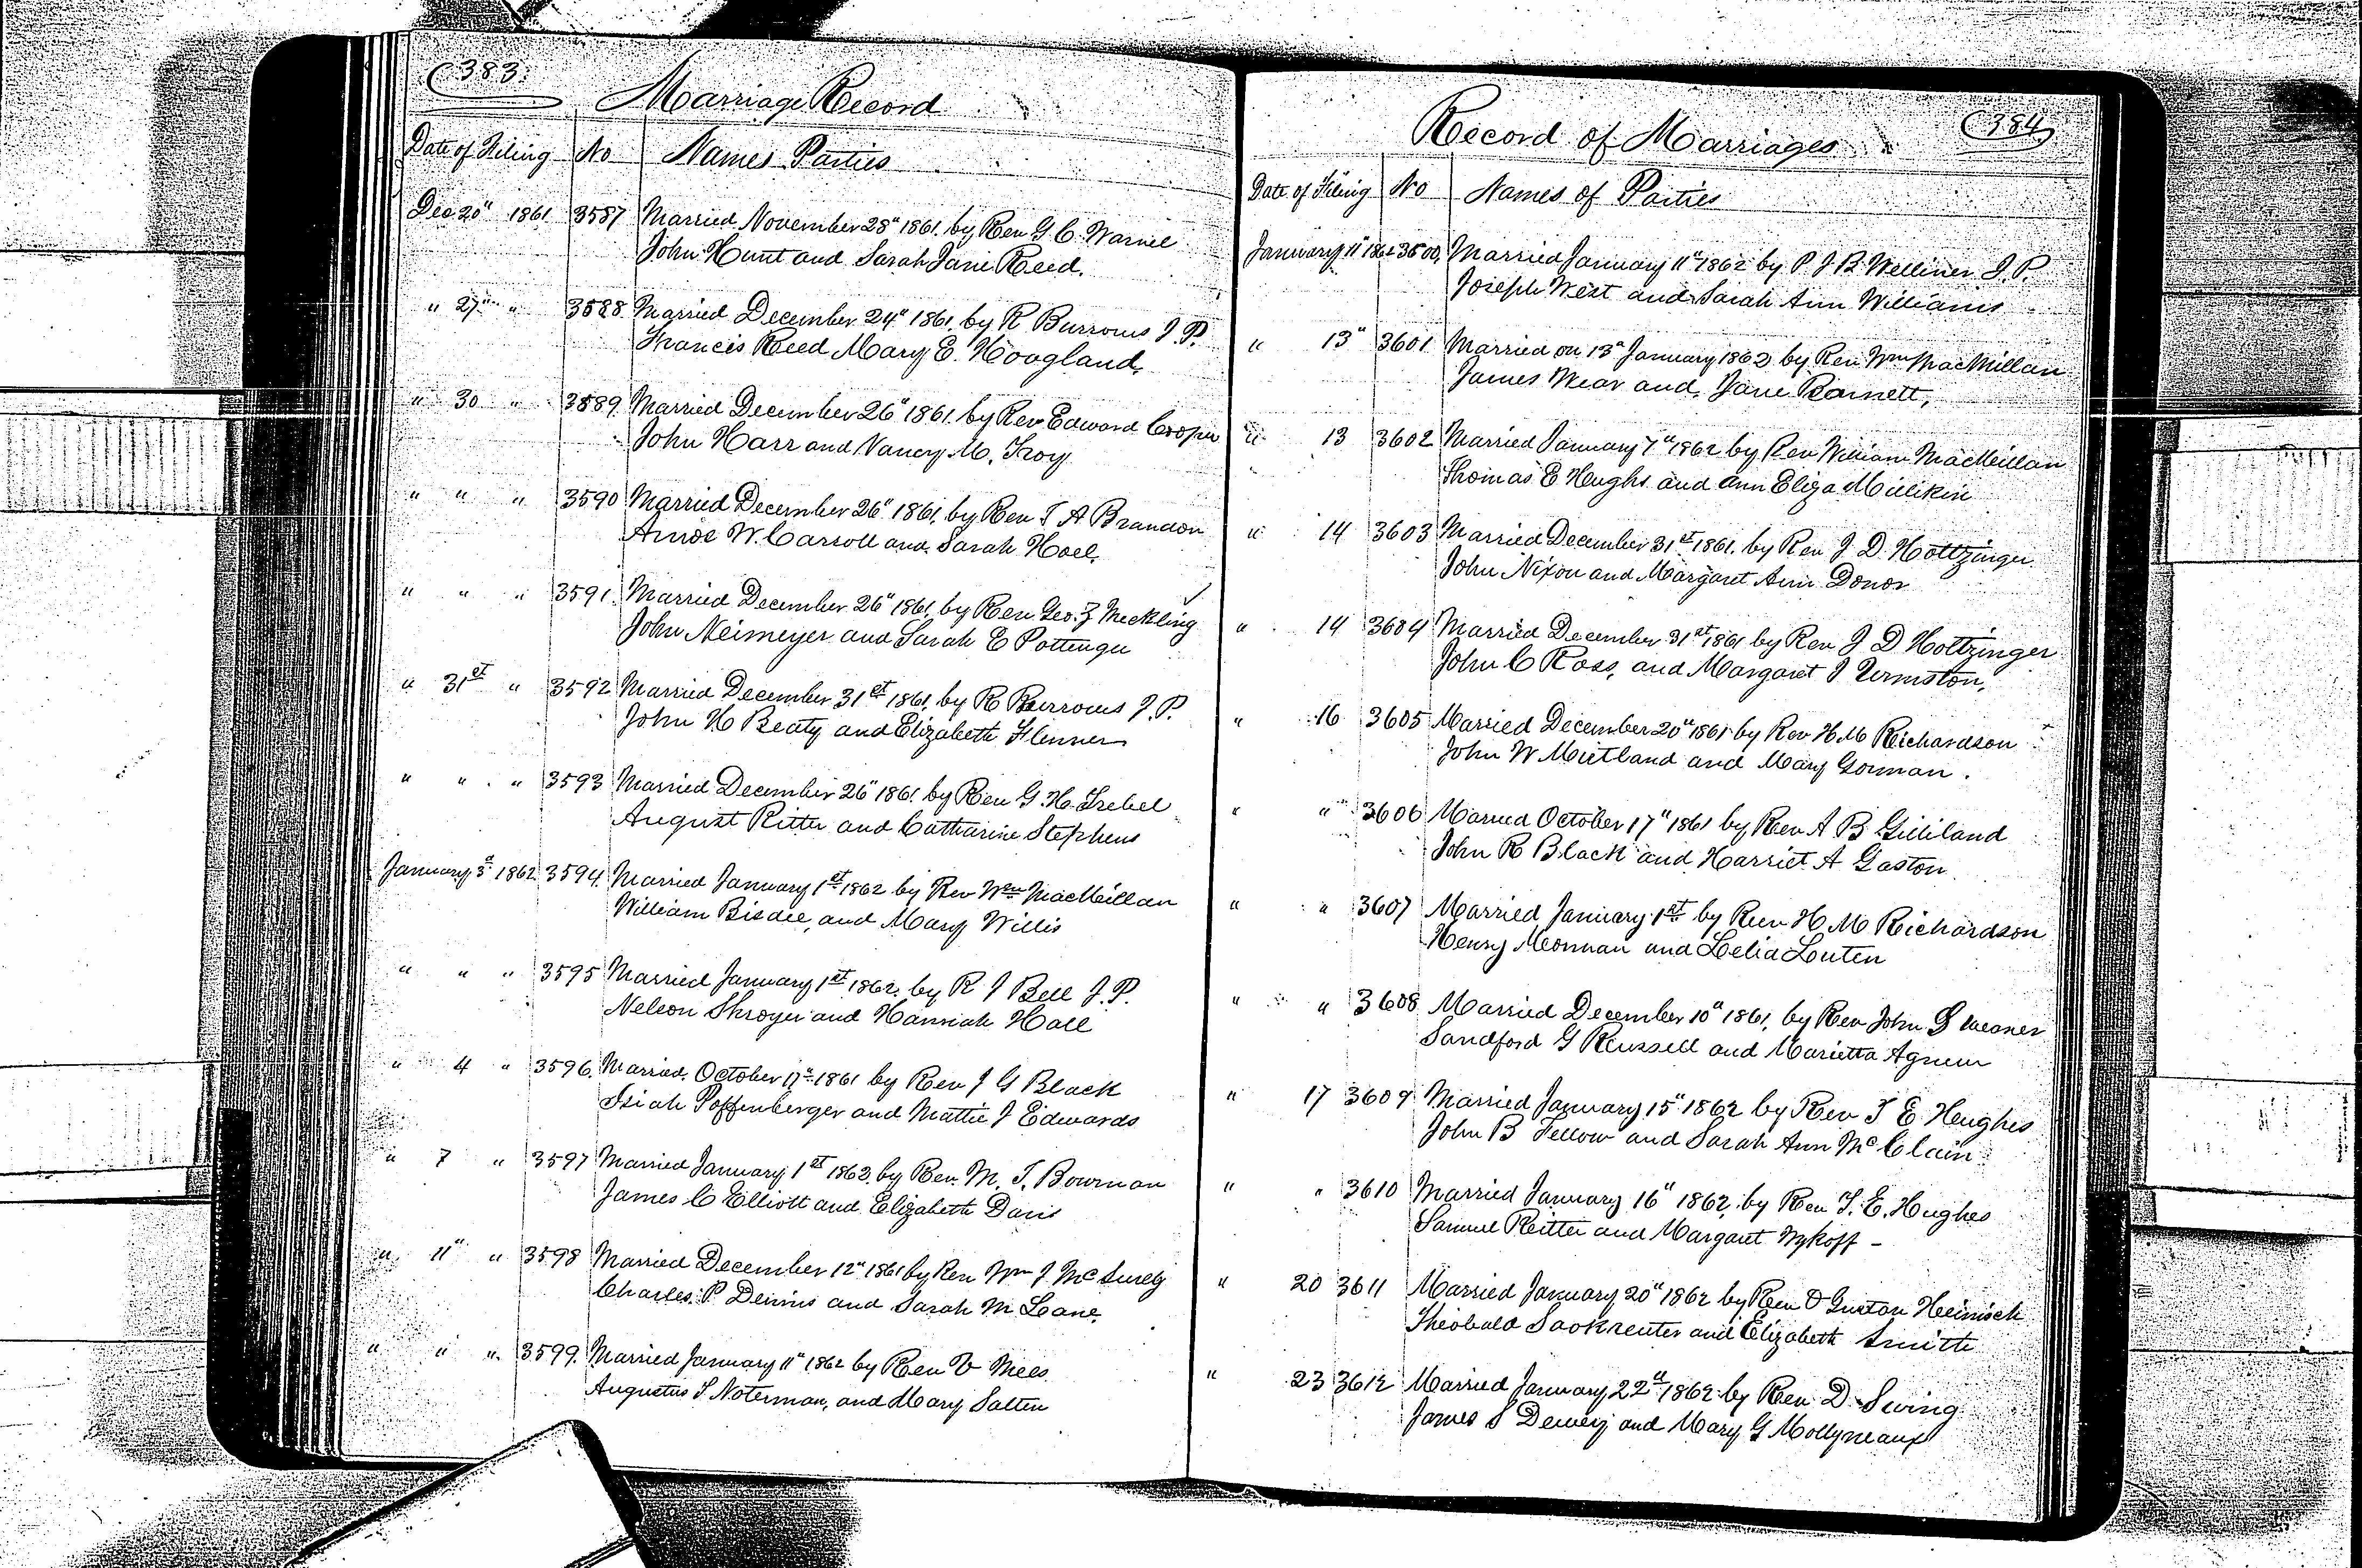 383
Marriage Record
Date of Filing No Names Parties
Dec 20" 1861 3587 Married November 28" 1861. by Rev G. C. Warvel
John Hunt and Sarah Jane Reed.
" 27" " 3588 Married December 24" 1861. by R Burrows J. P.
Francis Reed Mary E. Hoagland.
" 30 " 3589 Married December 26" 1861. by Rev Edward Cooper
John Harr and Nancy M. Troy
" " " 3590 Married December 26" 1861. by Rev T A Brandon
Amos W. Carroll and Sarah Hoel.
" " " 3591. Married December 26" 1861. by Rev Geo. Z Meckling
John Neimeyer and Sarah E Pottenger
" 31st " 3592 Married December 31st 1861. by R Burrows J. P.
John H Beaty and Elizabeth Flenner
" " " 3593 Married December 26" 1861. by Rev G. H. Trebel
August Ritter and Catharine Stephens
January 3d 1862 3594. Married January 1st 1862 by Rev Wm MacMillan
William Bisdee, and Mary Willis
" " " 3595 Married January 1st 1862. by R J Bell J. P.
Nelson Shroyer and Hannah Hall
" 4 " 3596. Married. October 17" 1861 by Rev J G Black
Isiah Poffenberger and Mattie J Edwards
" 7 " 3597 Married January 1st 1862. by Rev. M. T. Bowman
James C Elliott and Elizabeth Davis
" 11" " 3598 Married December 12" 1861 by Rev Wm J McSurely
Charles P Dennis and Sarah M Lane.
" " " 3599. Married January 11" 1862 by Rev V Mees
Augustus T Noterman, and Mary Salten
384
Record of Marriages
Date of Filing No Names of Parties
January 11" 1862 3600. Married January 11" 1862 by P J B Welliner J. P.
Joseph West and Sarah Ann Williams
" 13" 3601 Married on 13" January 1862 by Rev Wm MacMillan
James Wear and, Jane Barnett,
" 13 3602 Married January 7" 1862 by Rev William MacMillan
Thomas E Hughs and Ann Eliza Millikin
" 14 3603 Married December 31st 1861. by Rev J. D. Holtzinger
John Nixon and Margaret Ann Donor
" 14 3604 Married December 31st 1861 by Rev J D Holtzinger
John C Ross, and Margaret J Urmston,
" 16 3605 Married December 20" 1861 by Rev H. M Richardson
John W Mutland and Mary Gorman.
" " 3606 Married October 17" 1861 by Rev A B Gilliland
John R Black and Harriet A Gaston
" " 3607 Married January 1st by Rev H. M Richardson
Henry Morman and Lelia Louten
" " 3608 Married December 10" 1861, by Rev John G Weaver
Sandford G Russell and Marietta Agnew
" 17 3609 Married January 15" 1862 by Rev T E Hughes
John B Fellow and Sarah Ann McClain
" " 3610 Married January 16" 1862, by Rev T. E. Hughes
Samuel Ritter and Margaret Wykoff -
" 20 3611 Married January 20" 1862 by Rev O Guston Heinisch
Theobald Saokreuter and Elizabeth Smith
" 23 3612 Married January 22d 1862 by Rev D Swing
James S Dewey and Mary G Mollyneaux